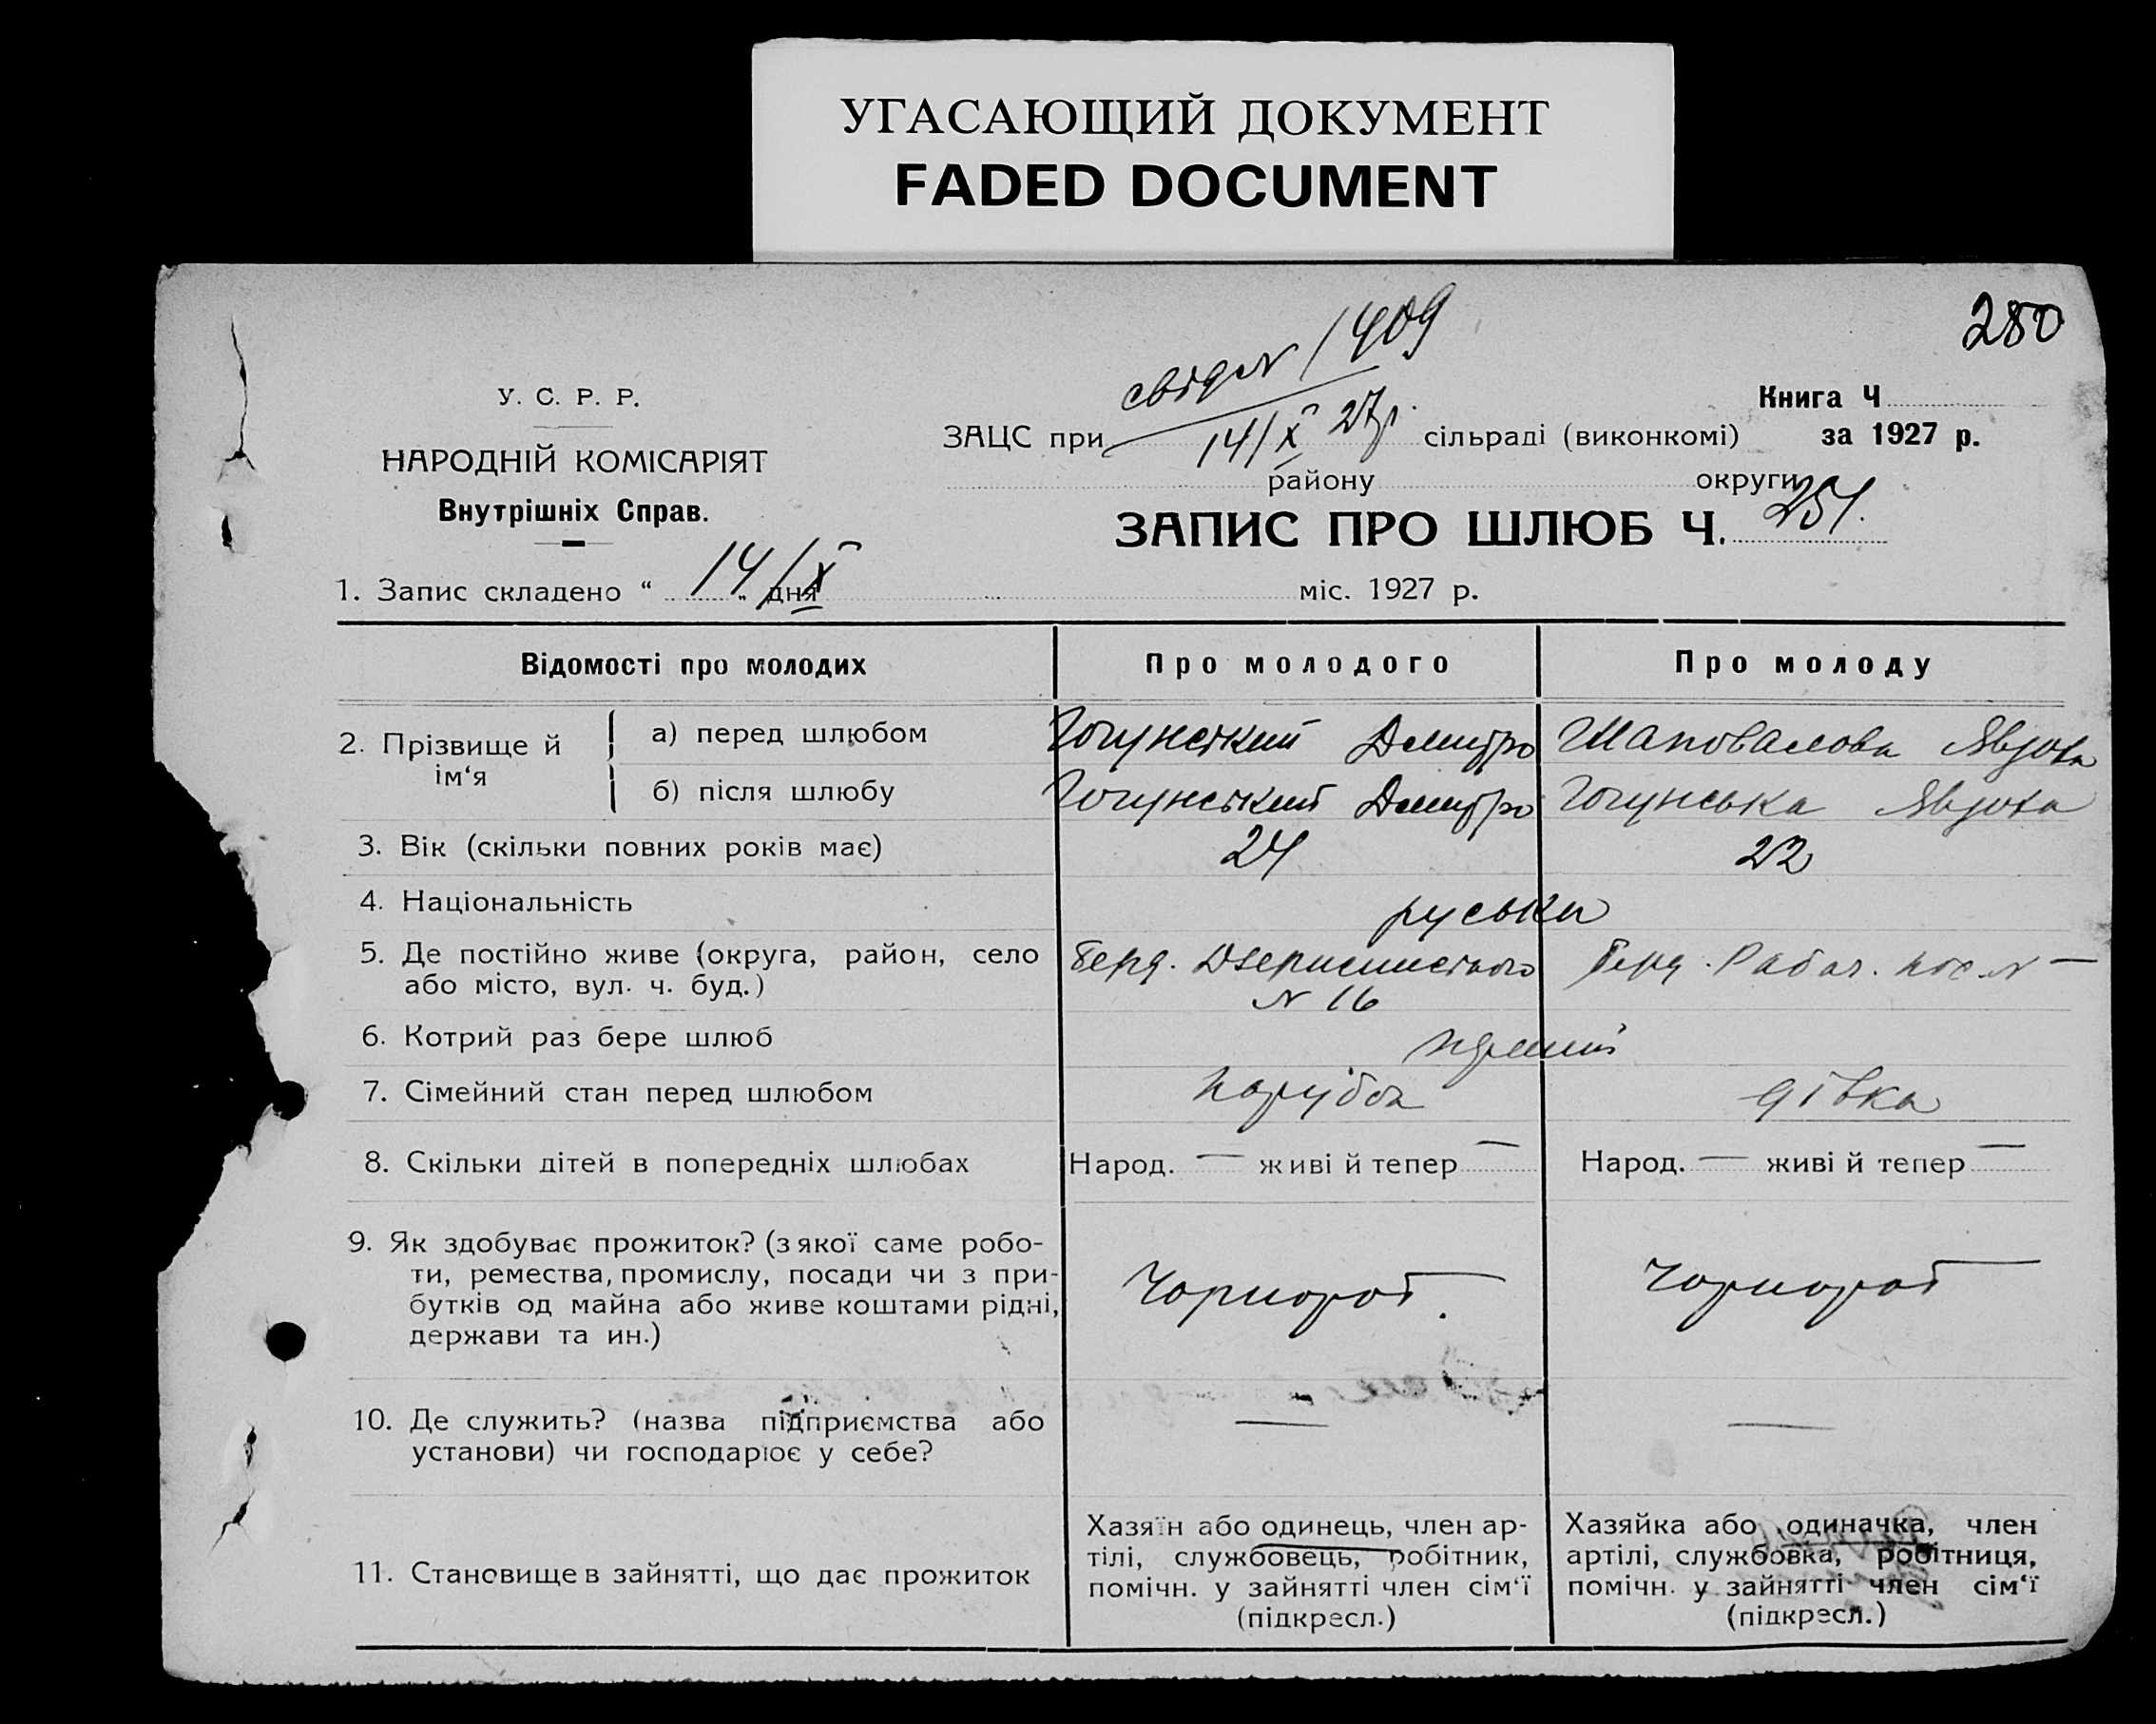 УГАСАЮЩИЙ ДОКУМЕНТ
FADED DOCUMENT
280
свідN 1409
14/X 27р.
У. С. Р. Р.
НАРОДНІЙ КОМІСАРІЯТ
Внутрішніх Справ.
Книга Ч
за 1927 р.
ЗАЦС при сільраді (виконкомі)
району округи
ЗАПИС ПРО ШЛЮБ Ч. 251.
1. Запис складено “ 14/X „ дня міс. 1927 р.
Відомості про молодих Про молодого Про молоду
2. Прізвище й ім‘я
а) перед шлюбом Гогунский Дмитро Шаповалова Явдоха
б) після шлюбу Гогунский Дмитро Гогунська Явдоха
3. Вік (скільки повних років має) 24 22
4. Національність руська
5. Де постійно живе (округа, район, село
або місто, вул. ч. буд.)
Берд. Дзержинського
N 16
Берд. Рабоч. пос. N —
6. Котрий раз бере шлюб перший
7. Сімейний стан перед шлюбом парубок дівка
8. Скільки дітей в попередніх шлюбах Народ. — живі й тепер — Народ. — живі й тепер —
9. Як здобуває прожиток? (з якої саме робо-
ти, ремества, промислу, посади чи з при-
бутків од майна або живе коштами рідні,
держави та ин.)
Чорнороб. Чорнороб
10. Де служить? (назва підприємства або
установи) чи господарює у себе?
— —
11. Становище в зайнятті, що дає прожиток
Хазяїн або одинець, член ар-
тілі, службовець, робітник,
помічн. у зайнятті член сім‘ї
(підкресл.)
Хазяйка або одиначка, член
артілі, службовка, робітниця,
помічн. у зайнятті член сім‘ї
(підкресл.)